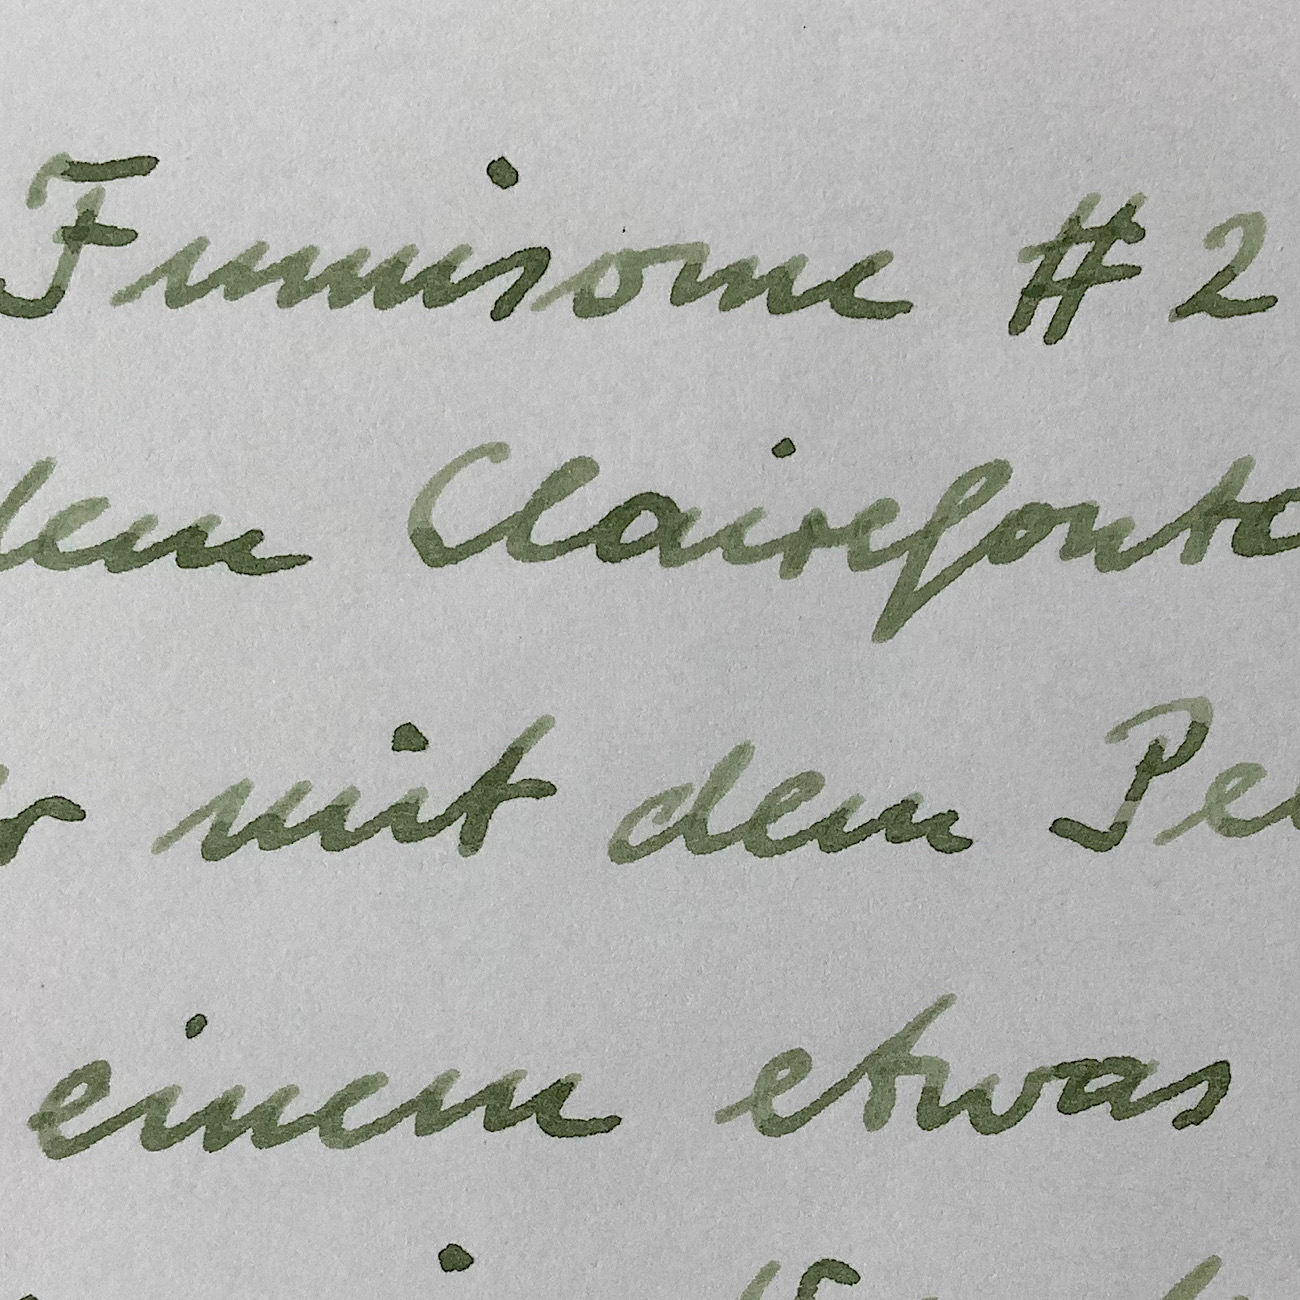 Fumisome #2
dem Clairefonta
mit dem Pe
einem etwas